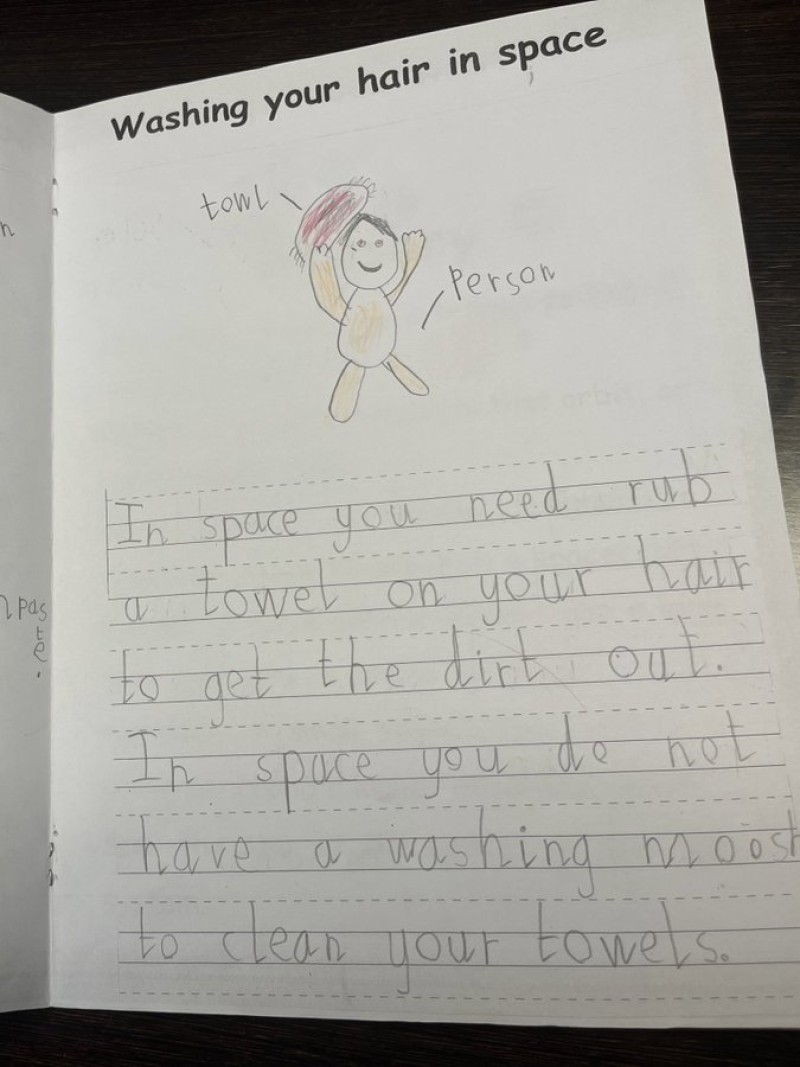 Washing your hair in space
towl
Person
In space you need rub
a towel on your hair
to get the dirt out.
In space you do not
have a washing
to clean your towels.
n
pas
te.